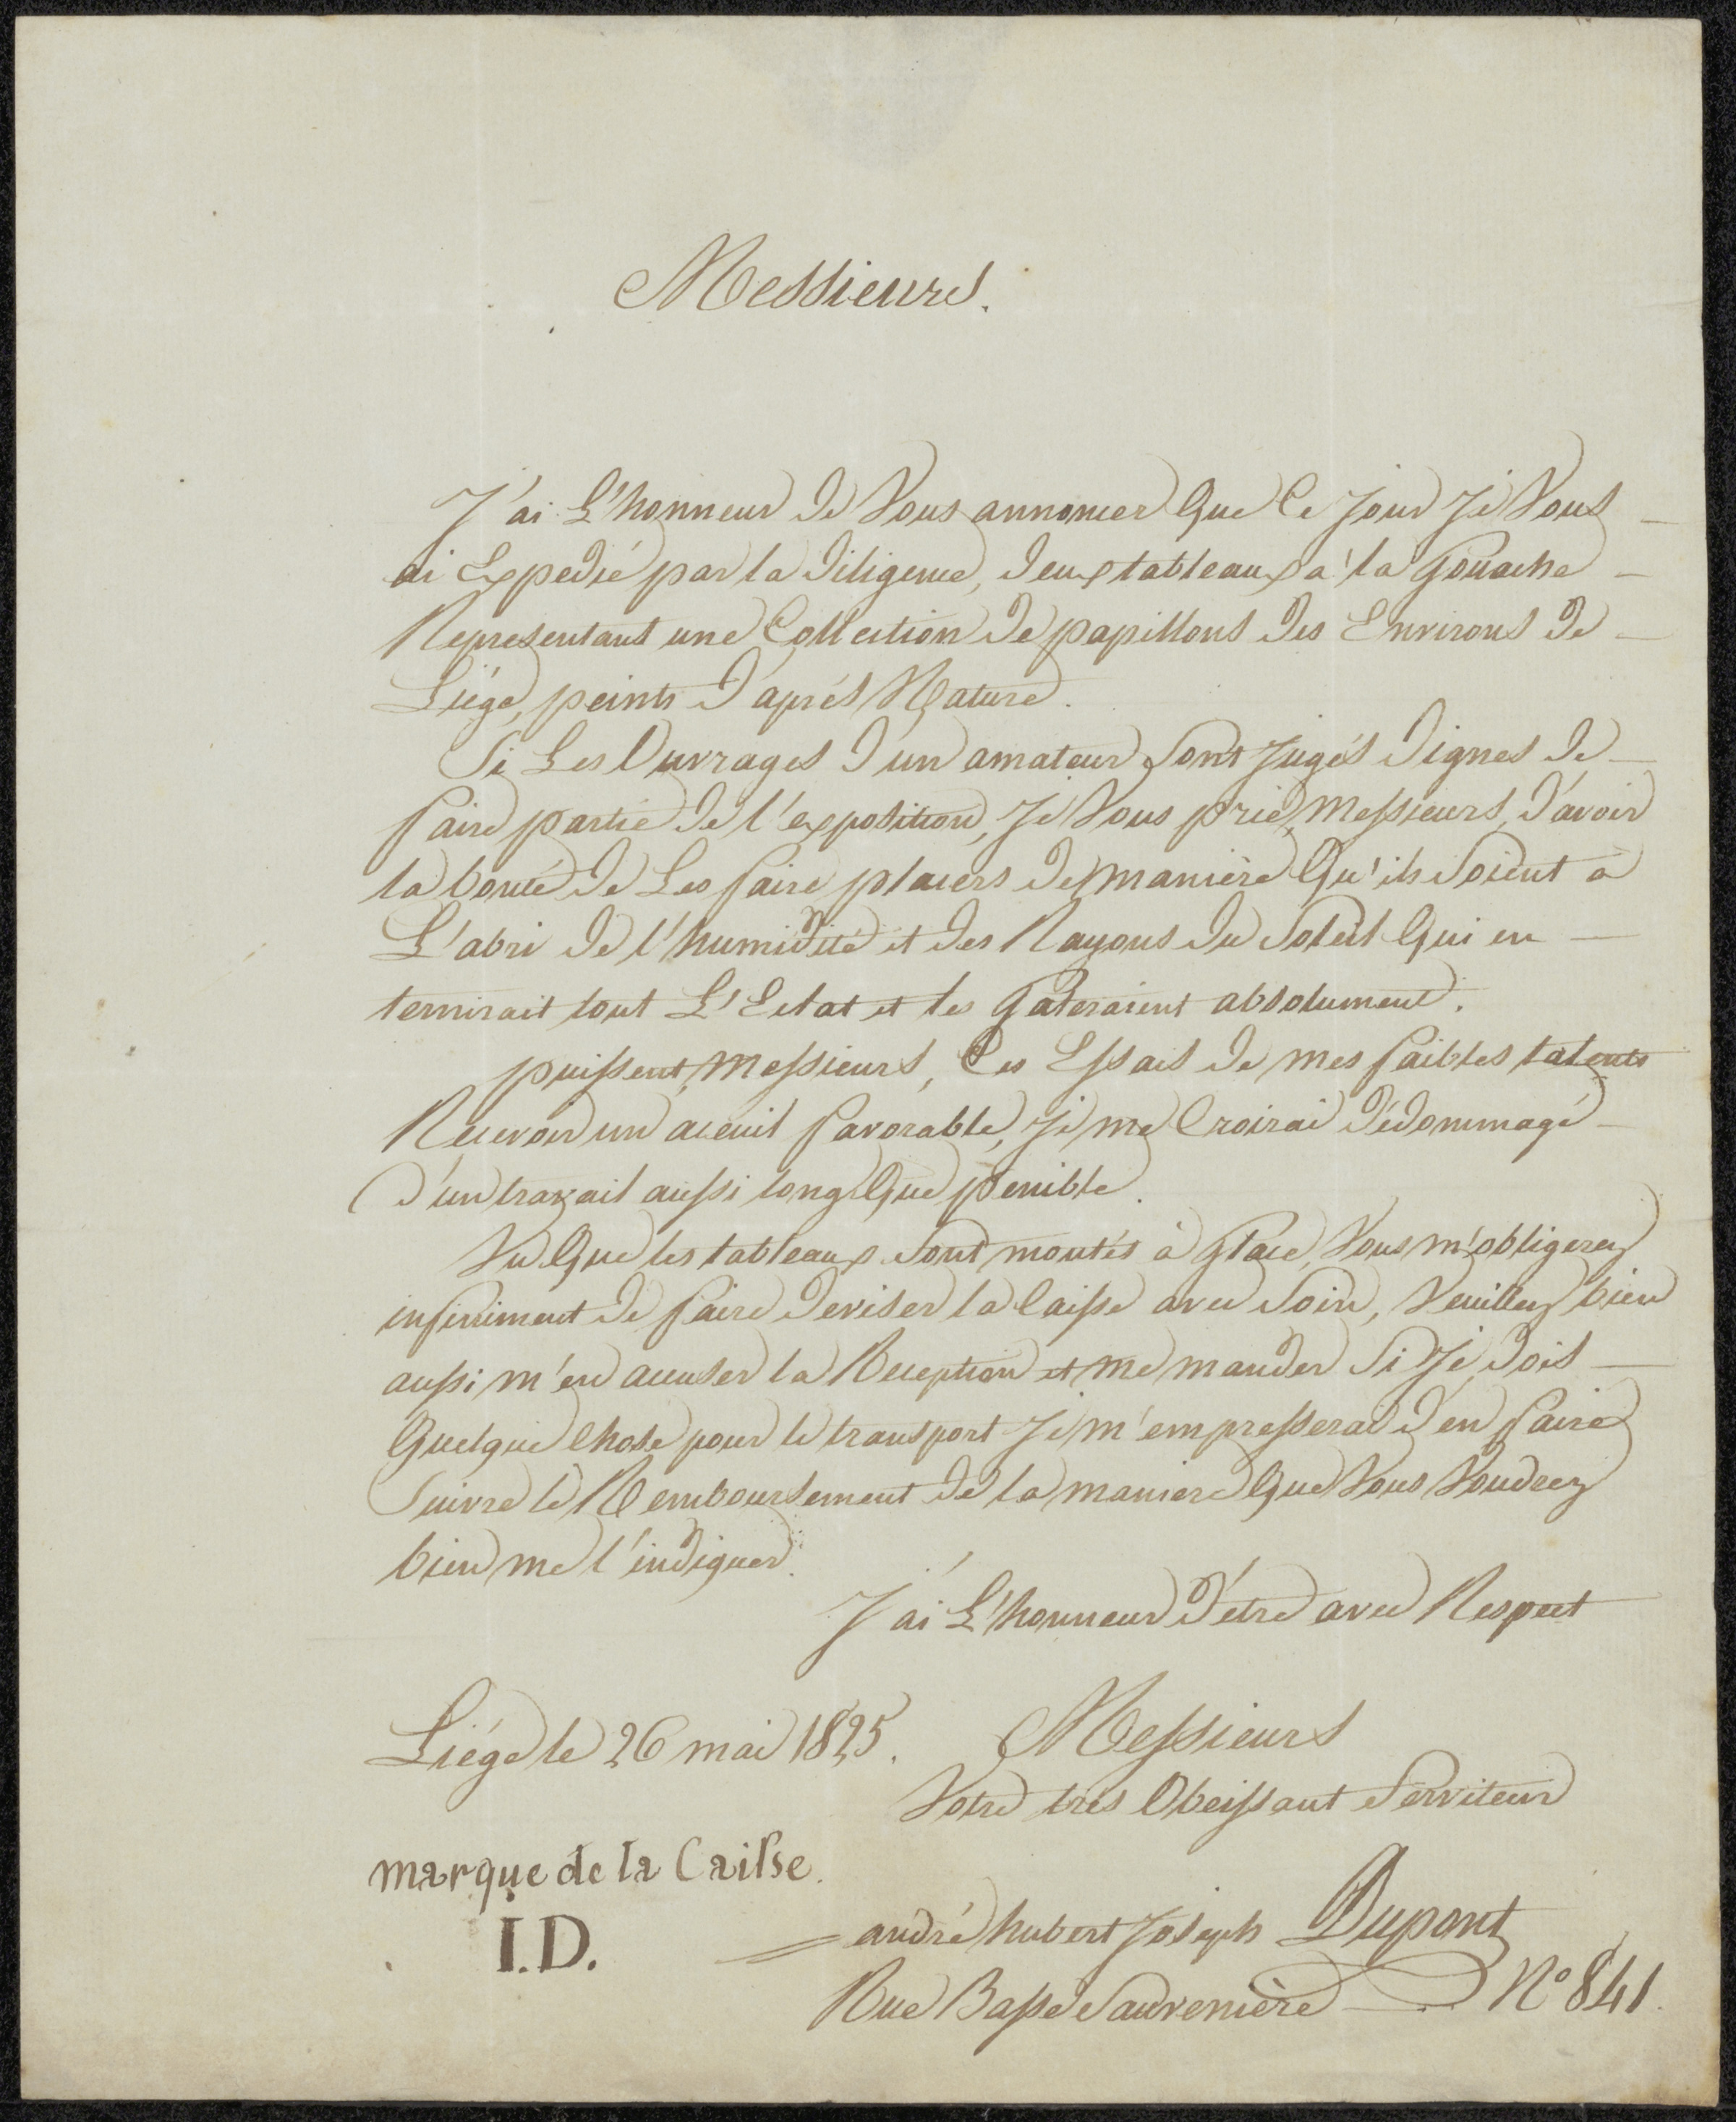 Messieurs.
J'ai L'honneur de Vous annoncer Que Ce Jour Je Vous
ai Expedié par la diligence, deux tableaux a la Gouache
Representant une Collection de papillons des Environs de
Liége, peints d'aprés Nature.
Si Les Ouvrages d'un amateur sont Jugés dignes de
faire partie de l'exposition, Je Vous prie, Messieurs, d'avoir
la bonté de Les faire placers de maniere Qu'ils Soient à
L'abri de l'humidité et des Rayons du Soleil Qui en
ternirait tout L'Eclat et les Gateraient absolument.
puissent, Messieurs, Ces Essais de mes faibles talents
Recevoir un aceuil favorable, Je me Croirai dédommagé
d'un travail aussi long Que penible.
Vu Que les tableaux Sont montés à Glace, Vous m'obligerez
infiniment de faire deviser la Caisse avec Soin, Veuillez bien
aussi m'en accuser la Reception et me mander Si Je dois
Quelque Chose pour le transport Je m'empresserai d'en faire
Suivre le Remboursement de la maniere Que Vous Voudrez
bien me l'indiquer.
J'ai L'honneur d'étre avec Respect
Liége le 26 mai 1825. Messieurs
Votre tres Obeissant Serviteur
marque de la Caisse.
I.D.
andré hubert Joseph Dupont
Rue Basse Sauvenière N° 841.